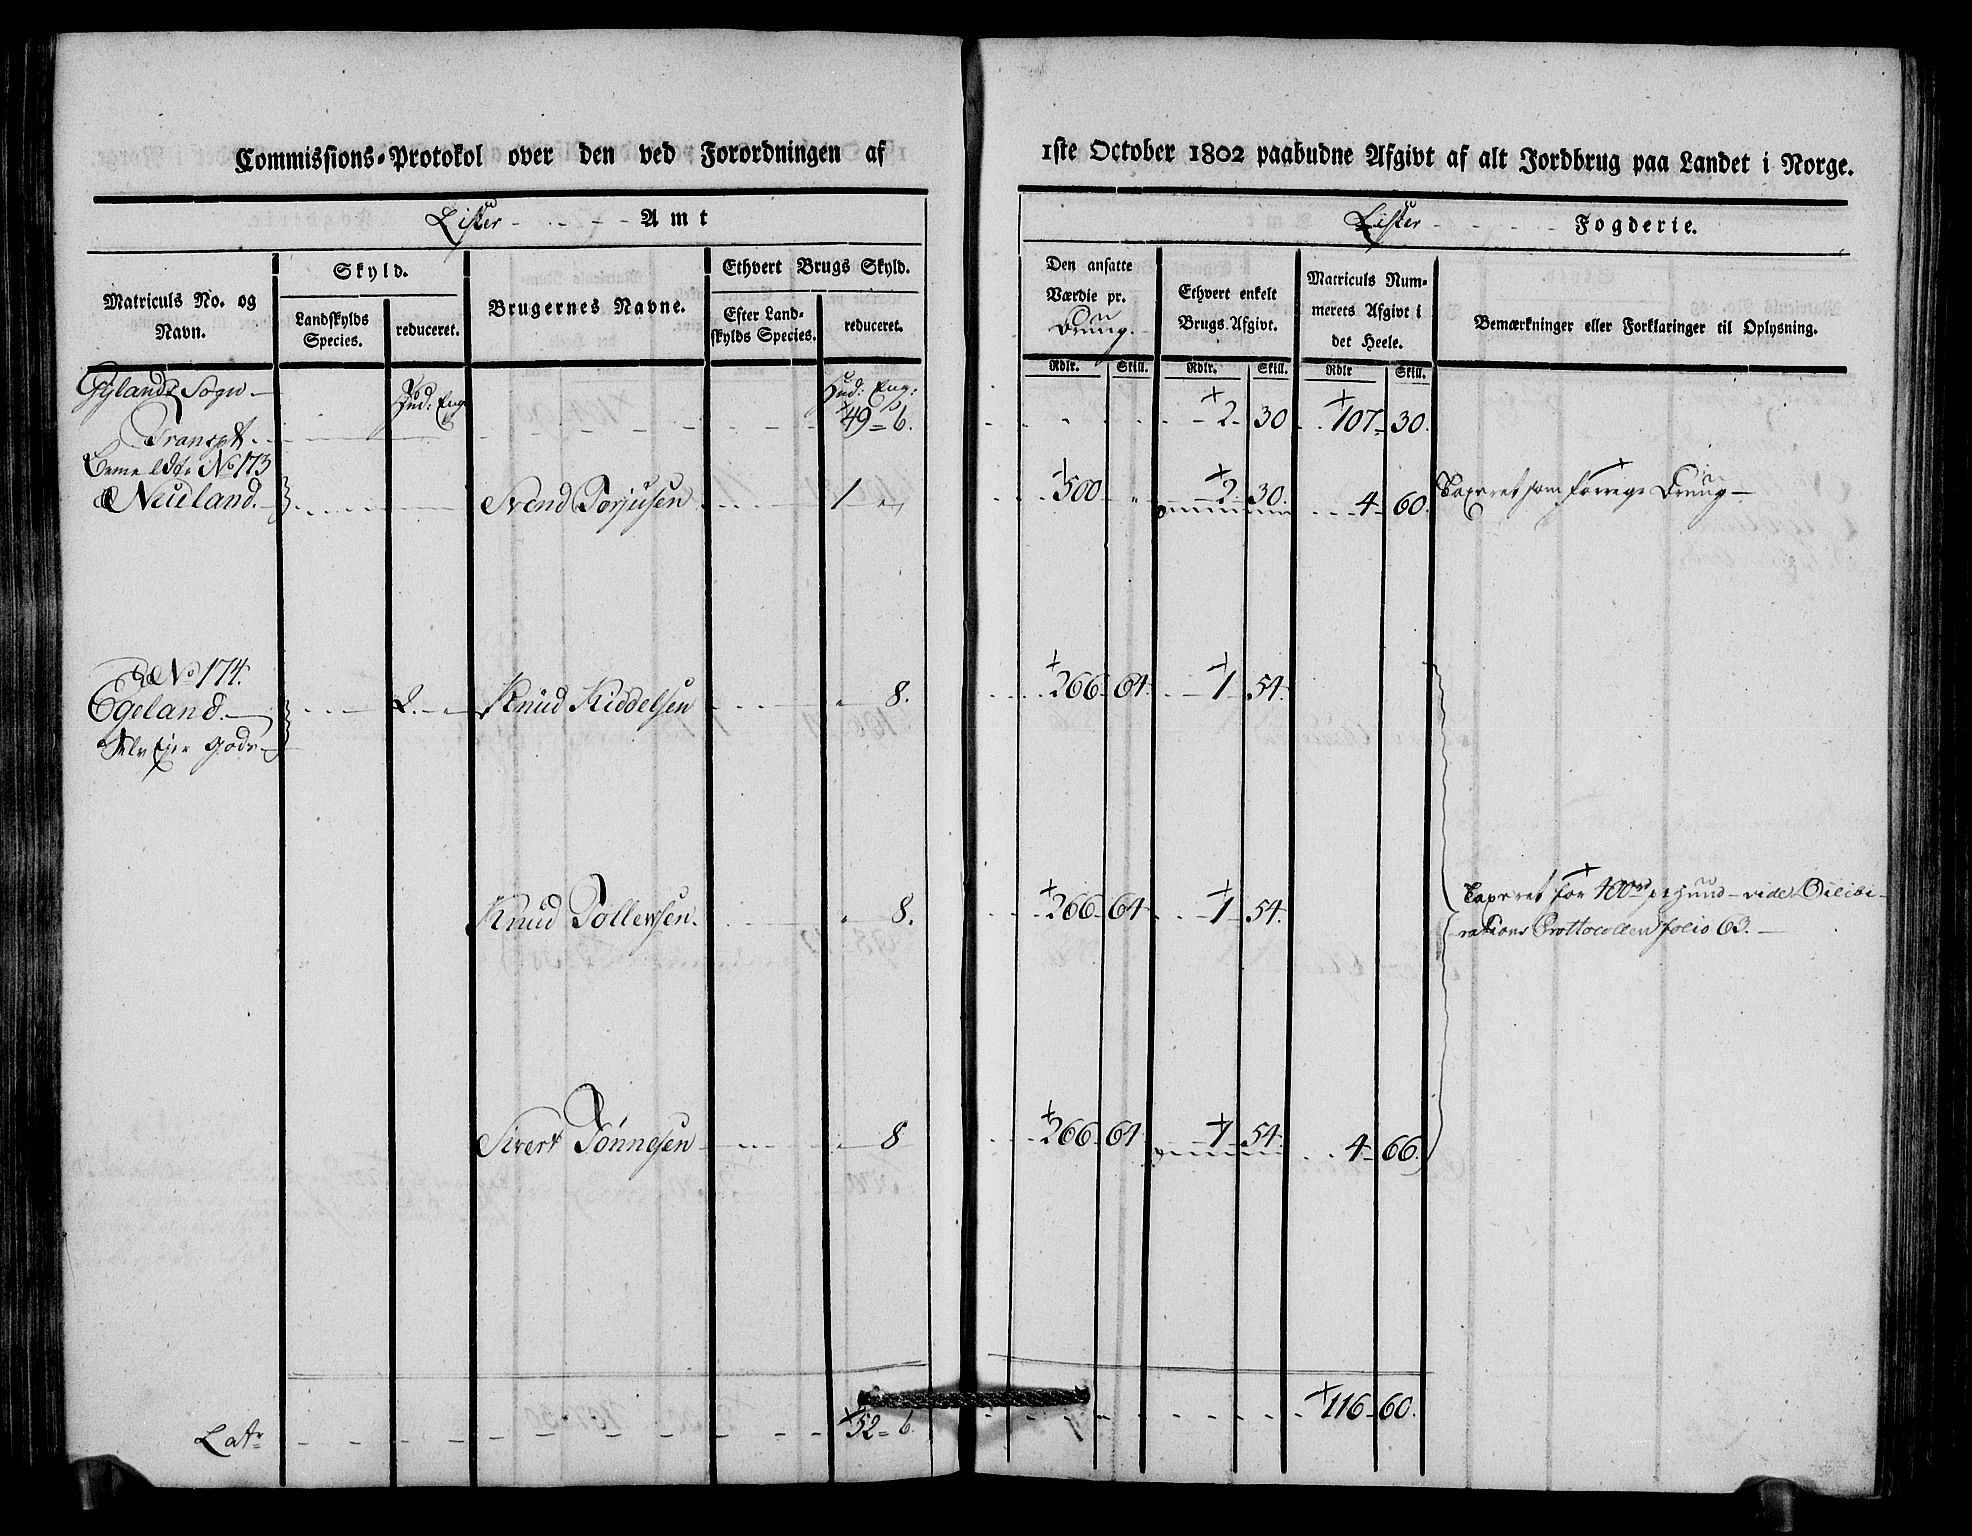 Commissions-Protokol over den ved Forordningen af 1ste October 1802 paabudne Afgivt af alt Jordbrug paa Landet i Norge.
Lister Amt
Lister Fogderie.
Matriculs No. og Navn.
Skyld.
Landskylds Species.
reduceret.
Brugernes Navne.
Ethvert Brugs Skyld.
Efter Landskylds Species.
reduceret.
Den ansatte Værdie pr.
Ethvert enkelt Brugs Afgivt.
Matriculs Nummerets Afgivt i det Heele.
Bemærkninger eller Forklaringer til Oplysning.
Rdlr. Skill. Rdlr. Skill. Rdlr Skill.
Gylands Sogn Hud: Eng Hud: Eng:
Transpt. 49 6. 2 30 107 30.
No 173
Neüland. Svend Torjusen 1 " 500 " 2 30. 4 60. Taxeret som forrige
No 174.
Egeland. 2. " Knud Kiddelsen " 8. 266 64 1 54.
Selv Ejer Gods
Knud Tollevsen. " 8. 266 64 1 54. Taxeret for 400 rd pr Hund vide Delibe-
rations Prottocollen folio 63.
Sivert Tönnesen " 8 266 64 1 54. 4 66.
Latr 52 6 116 60.